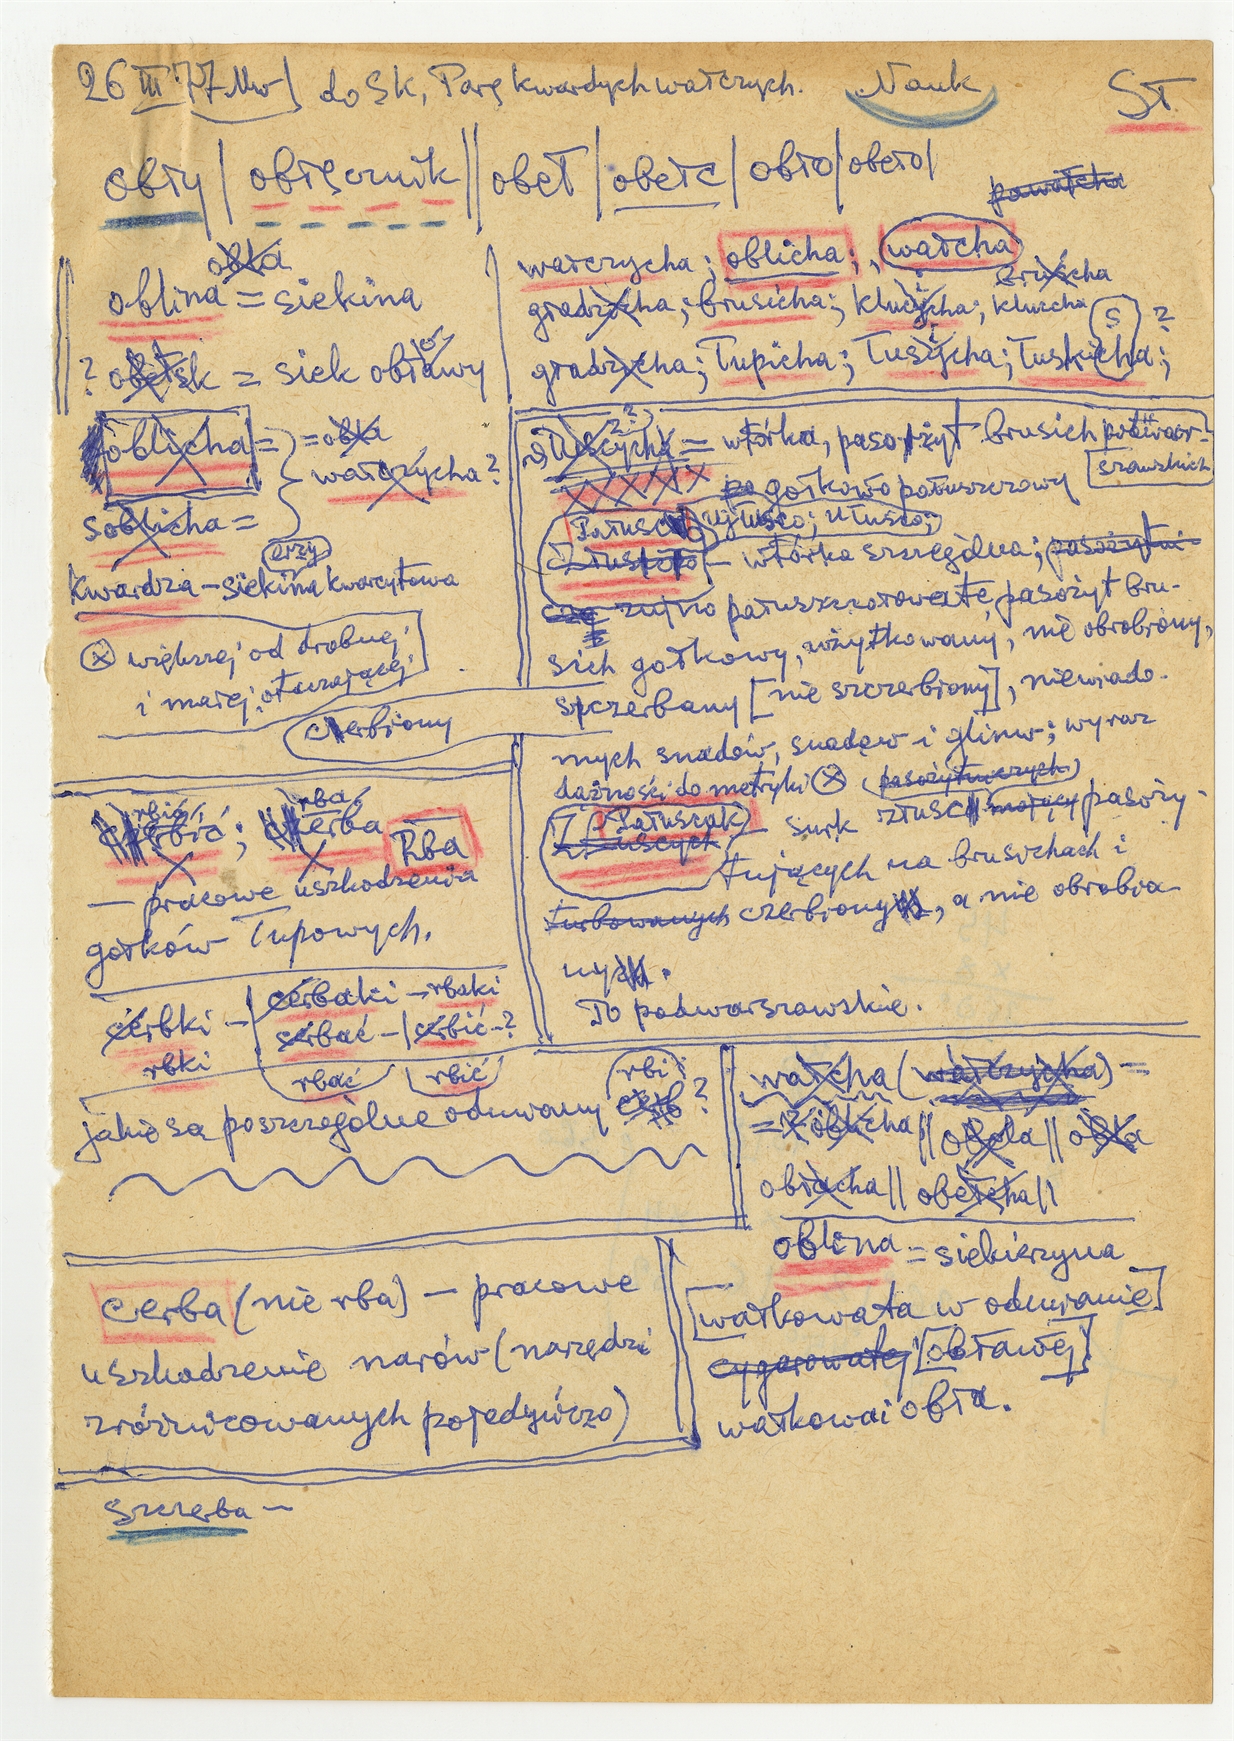 26 III 77 Mw] do Sk, Parę kwardych wałczych. Nauk
SŁ
obły | obłęcznik || obeł | obełc | obło | obeło |
powałcha
obła
oblina = siekina
? obełsk = siek obławy
oblicha =
soblicha =
= obła
wałczycha ?
Kwardza – siekina kwarcytowa
(x) większej od drobnej
i małej, otaczającej.
czerbiony
wałczycha; oblicha; wałcha
gładzicha; brusicha; kluczycha; kluzcha
bruscha
gładzicha; Łupicha; Łusicha; Łuskicha; ?
S
= wtórka, pasożyt brusich podwar-
szawskich
gołkowo połuszczowy
ujłusco; ułusco;
– wtórka szczególna; pasożytni-
zujno połuszczołowate, pasożyt bru-
sich gołkowy, użytkowany, nie obrobiony,
szczerbany [nie szczerbiony], niewiado-
mych snadów, snadew i glinw; wyraz
dążności do metryki (x) (pasożytniczych)
Pałuscak
– surk złusc mający pasoży-
tujących na brusichach i
turbowanych czerbiony, a nie obrobia-
ny.
To podwarszawskie.
rbić
rba
czerbić; czerba
Rba
– pracowe uszkodzenia
gołków Łupowych.
cerbki – cerbaki – rbaki
cerbać – cerbić – ?
rbki
rbać
rbić
rbi
jakie są poszczególne odmiany cerb ?
wałcha (wałczycha) =
= oblicha || obola || obła
obłacha || obełcha ||
oblina = siekierzyna
[wałkowata w odmianie]
cygarowatej [obławej]
wałkowai obła.
Cerba (nie rba) – pracowe
uszkodzenie narów (narzędzi
zróżnicowanych pojedyńczo)
Szczerba –